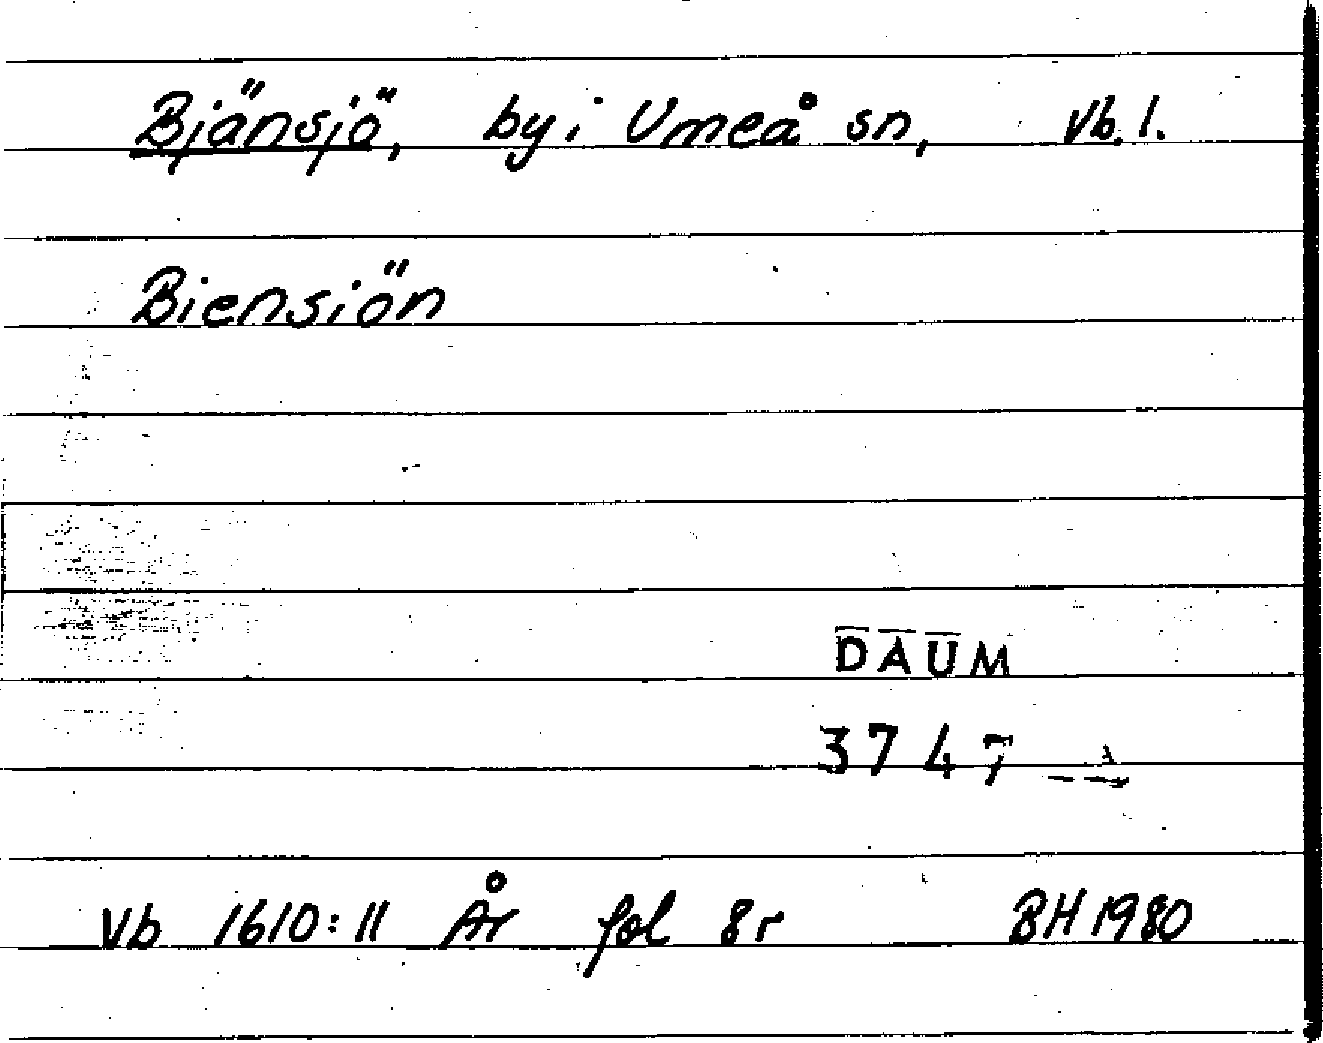 Bjänsjö, by i Umeå sn, Vb. l.
Biensiön
DAUM
3747
Vb 1610:11 År fol 8r BH 1980